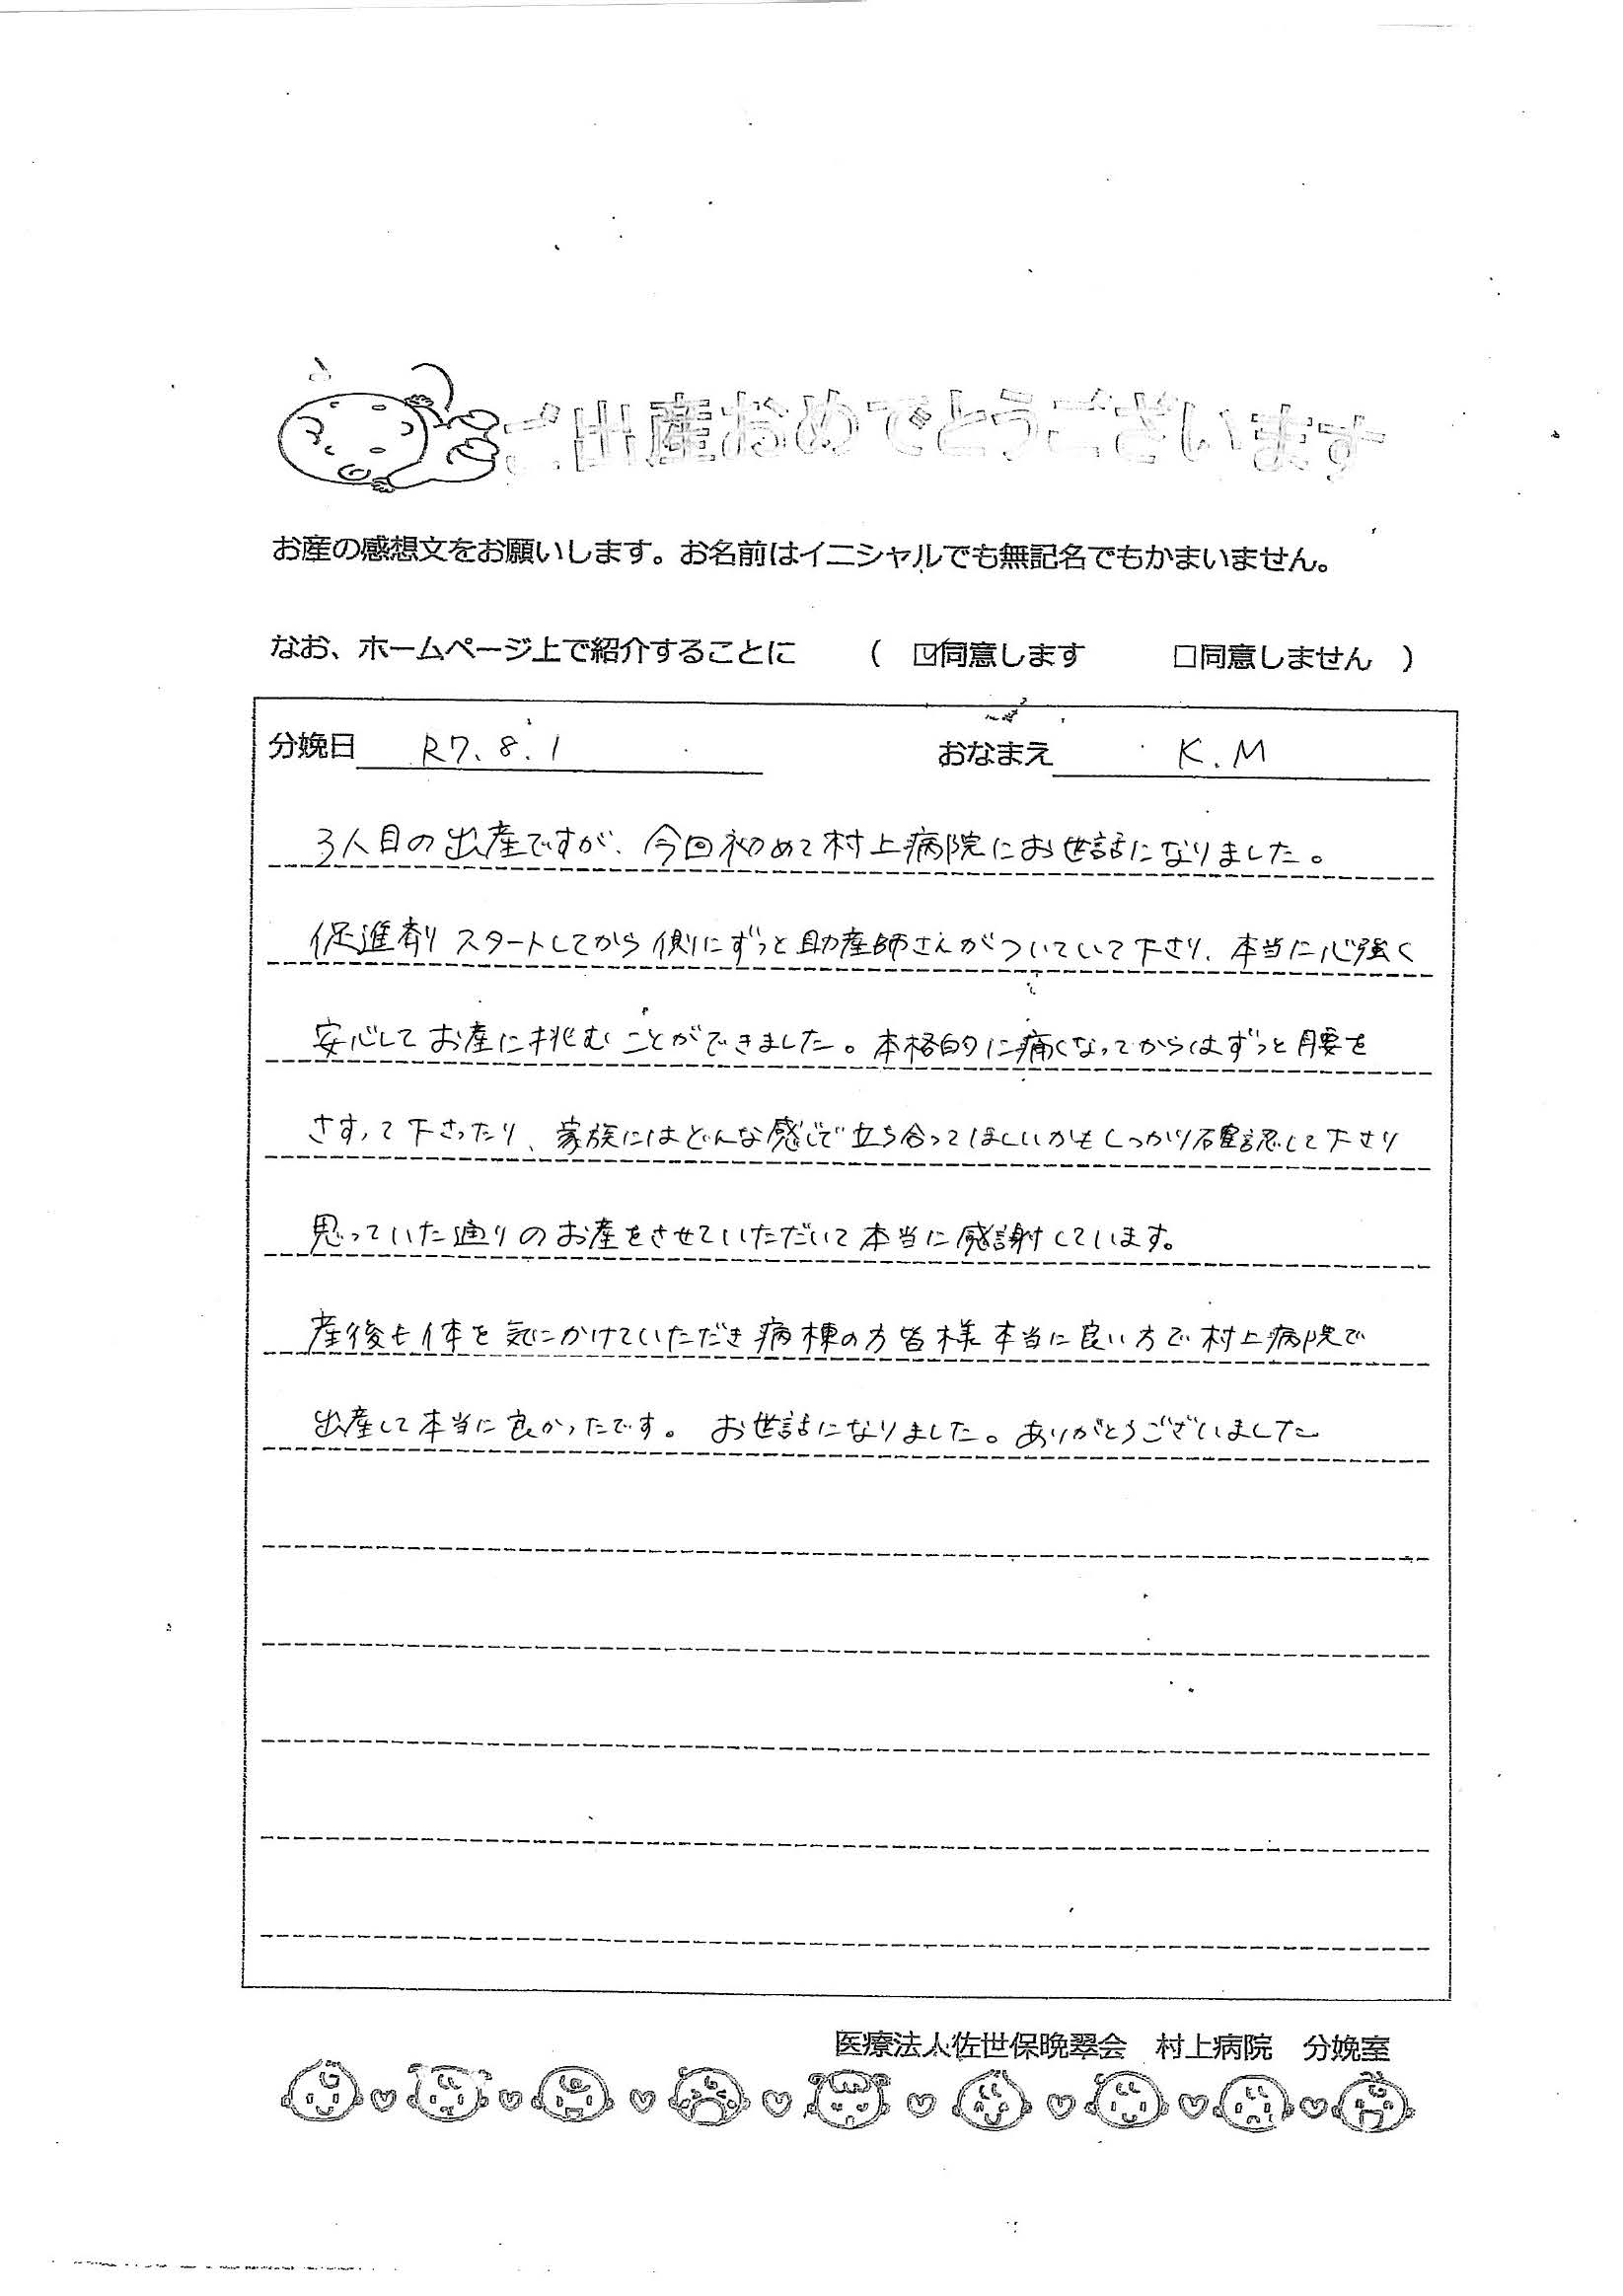 ご出産おめでとうございます
お産の感想文をお願いします。お名前はイニシャルでも無記名でもかまいません。
なお、ホームページ上で紹介することに ( ☑同意します □同意しません )
分娩日 R7.8.1 おなまえ K.M
3人目の出産ですが、今回初めて村上病院にお世話になりました。
促進剤スタートしてから側にずっと助産師さんがついていて下さり、本当に心強く
安心してお産に挑むことができました。本格的に痛くなってからはずっと腰を
さすって下さったり、家族にはどんな感じで立ち合ってほしいかもしっかり確認して下さり
思っていた通りのお産をさせていただいて本当に感謝しています。
産後も体を気にかけていただき病棟の方皆様本当に良い方で村上病院で
出産して本当に良かったです。お世話になりました。ありがとうございました
医療法人佐世保晩翠会 村上病院 分娩室